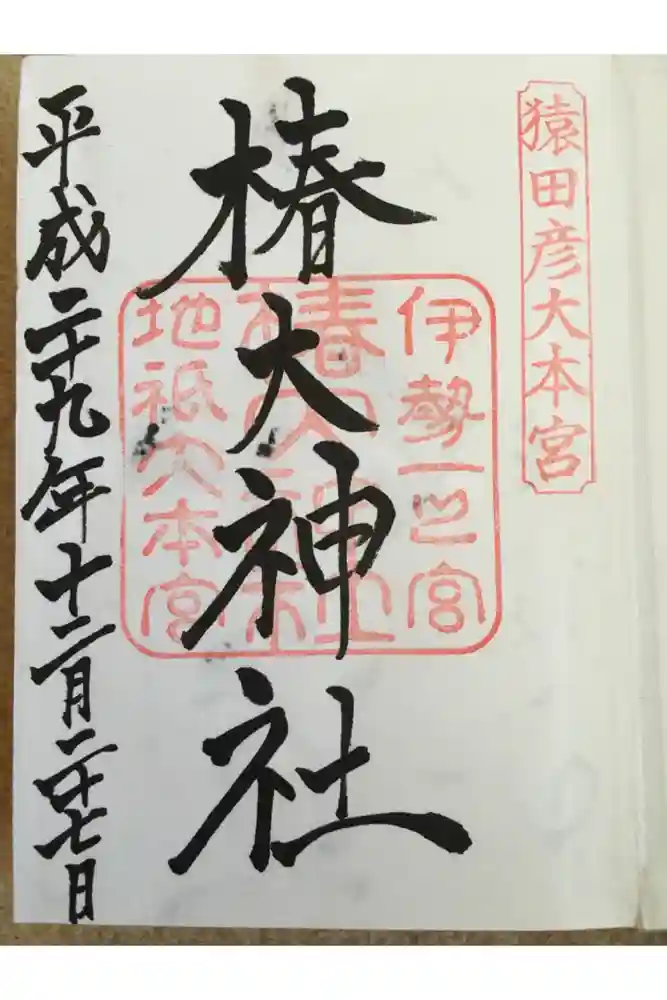 猿田彦大本宮
伊勢一之宮
椿大神社
地祇大本宮
椿大神社
平成二十九年十二月二十七日